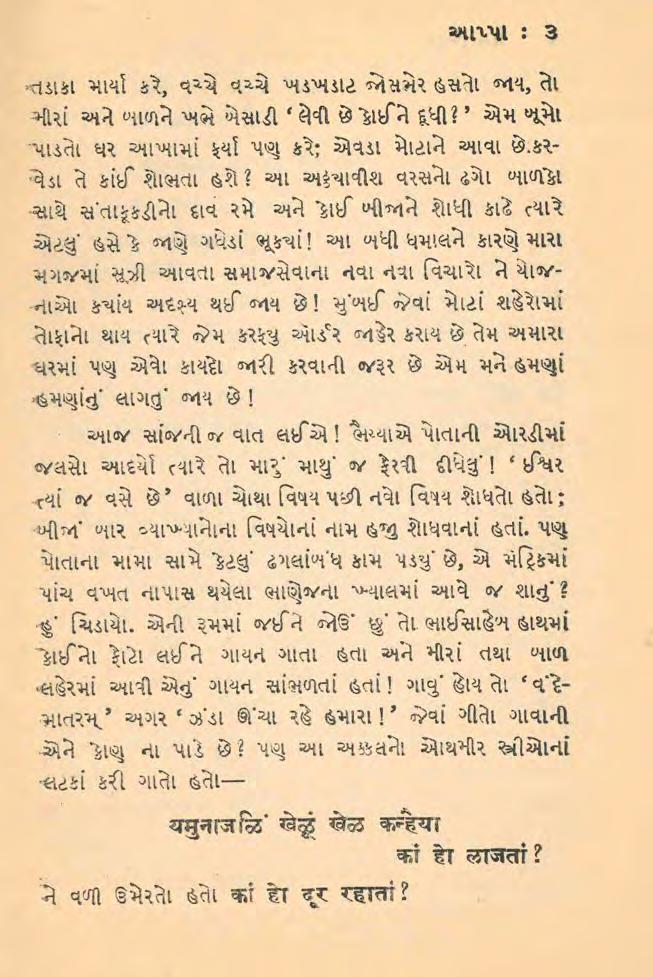 આપ્પા : ૩
તડાકા માર્યા કરે, વચ્ચે વચ્ચે ખડખડાટ જોસભેર હસતો જાય, તો
મીરાં અને બાળને ખભે બેસાડી ‘લેવી છે કોઈને દૂધી?’ એમ બૂમો
પાડતો ઘર આખામાં ફર્યા પણ કરે; એવડા મોટાને આવા છે.કર-
વેડા તે કાંઈ શોભતા હશે? આ અઠ્ઠયાવીશ વરસનો ઢગો બાળકો
સાથે સંતાકૂકડીનો દાવ રમે અને કોઈ બીજાને શોધી કાઢે ત્યારે
એટલું હસે કે જાણે ગધેડાં ભૂક્યાં! આ બધી ધમાલને કારણે મારા
મગજમાં સૂઝી આવતા સમાજસેવાના નવા નવા વિચારો ને યોજ-
નાઓ કયાંય અદશ્ય થઈ જાય છે! મુંબઈ જેવાં મોટાં શહેરોમાં
તોફાનો થાય ત્યારે જેમ કરફ્યુ ઑર્ડર જાહેર કરાય છે તેમ અમારા
ઘરમાં પણ એવો કાયદો જારી કરવાની જરૂર છે એમ મને હમણાં
હમણાંનું લાગતું જાય છે!
આજ સાંજની જ વાત લઈએ! ભૈય્યાએ પોતાની ઓરડીમાં
જલસો આદર્યો ત્યારે તો મારું માથું જ ફેરવી દીધેલું! ‘ઈશ્વર
ત્યાં જ વસે છે’ વાળા ચોથા વિષય પછી નવો વિષય શોધતો હતો;
બીજાં બાર વ્યાખ્યાનોના વિષયોનાં નામ હજુ શોધવાનાં હતાં. પણ
પોતાના મામા સામે કેટલું ઢગલાબંધ કામ પડયું છે, એ મૅટ્રિકમાં
પાંચ વખત નાપાસ થયેલા ભાણેજના ખ્યાલમાં આવે જ શાનું?
હું ચિડાયો. એની રૂમમાં જઈને જોઉં છું તો ભાઈસાહેબ હાથમાં
કોઈનો ફોટો લઈને ગાયન ગાતા હતા અને મીરાં તથા બાળ
લહેરમાં આવી એનું ગાયન સાંભળતાં હતાં! ગાવું હોય તો ‘વંદે-
માતરમ્’ અગર ‘ઝંડા ઊંચા રહે હમારા!’ જેવાં ગીતો ગાવાની
એને કોણ ના પાડે છે? પણ આ અક્કલનો ઓથમીર સ્ત્રીઓનાં
લટકાં કરી ગાતો હતો—
યમુનાજળિં ખેળૂં ખેળ કન્હૈયા
કાં હો લાજતાં?
ને વળી ઉમેરતો હતો કાં હો દૂર રહાતાં?